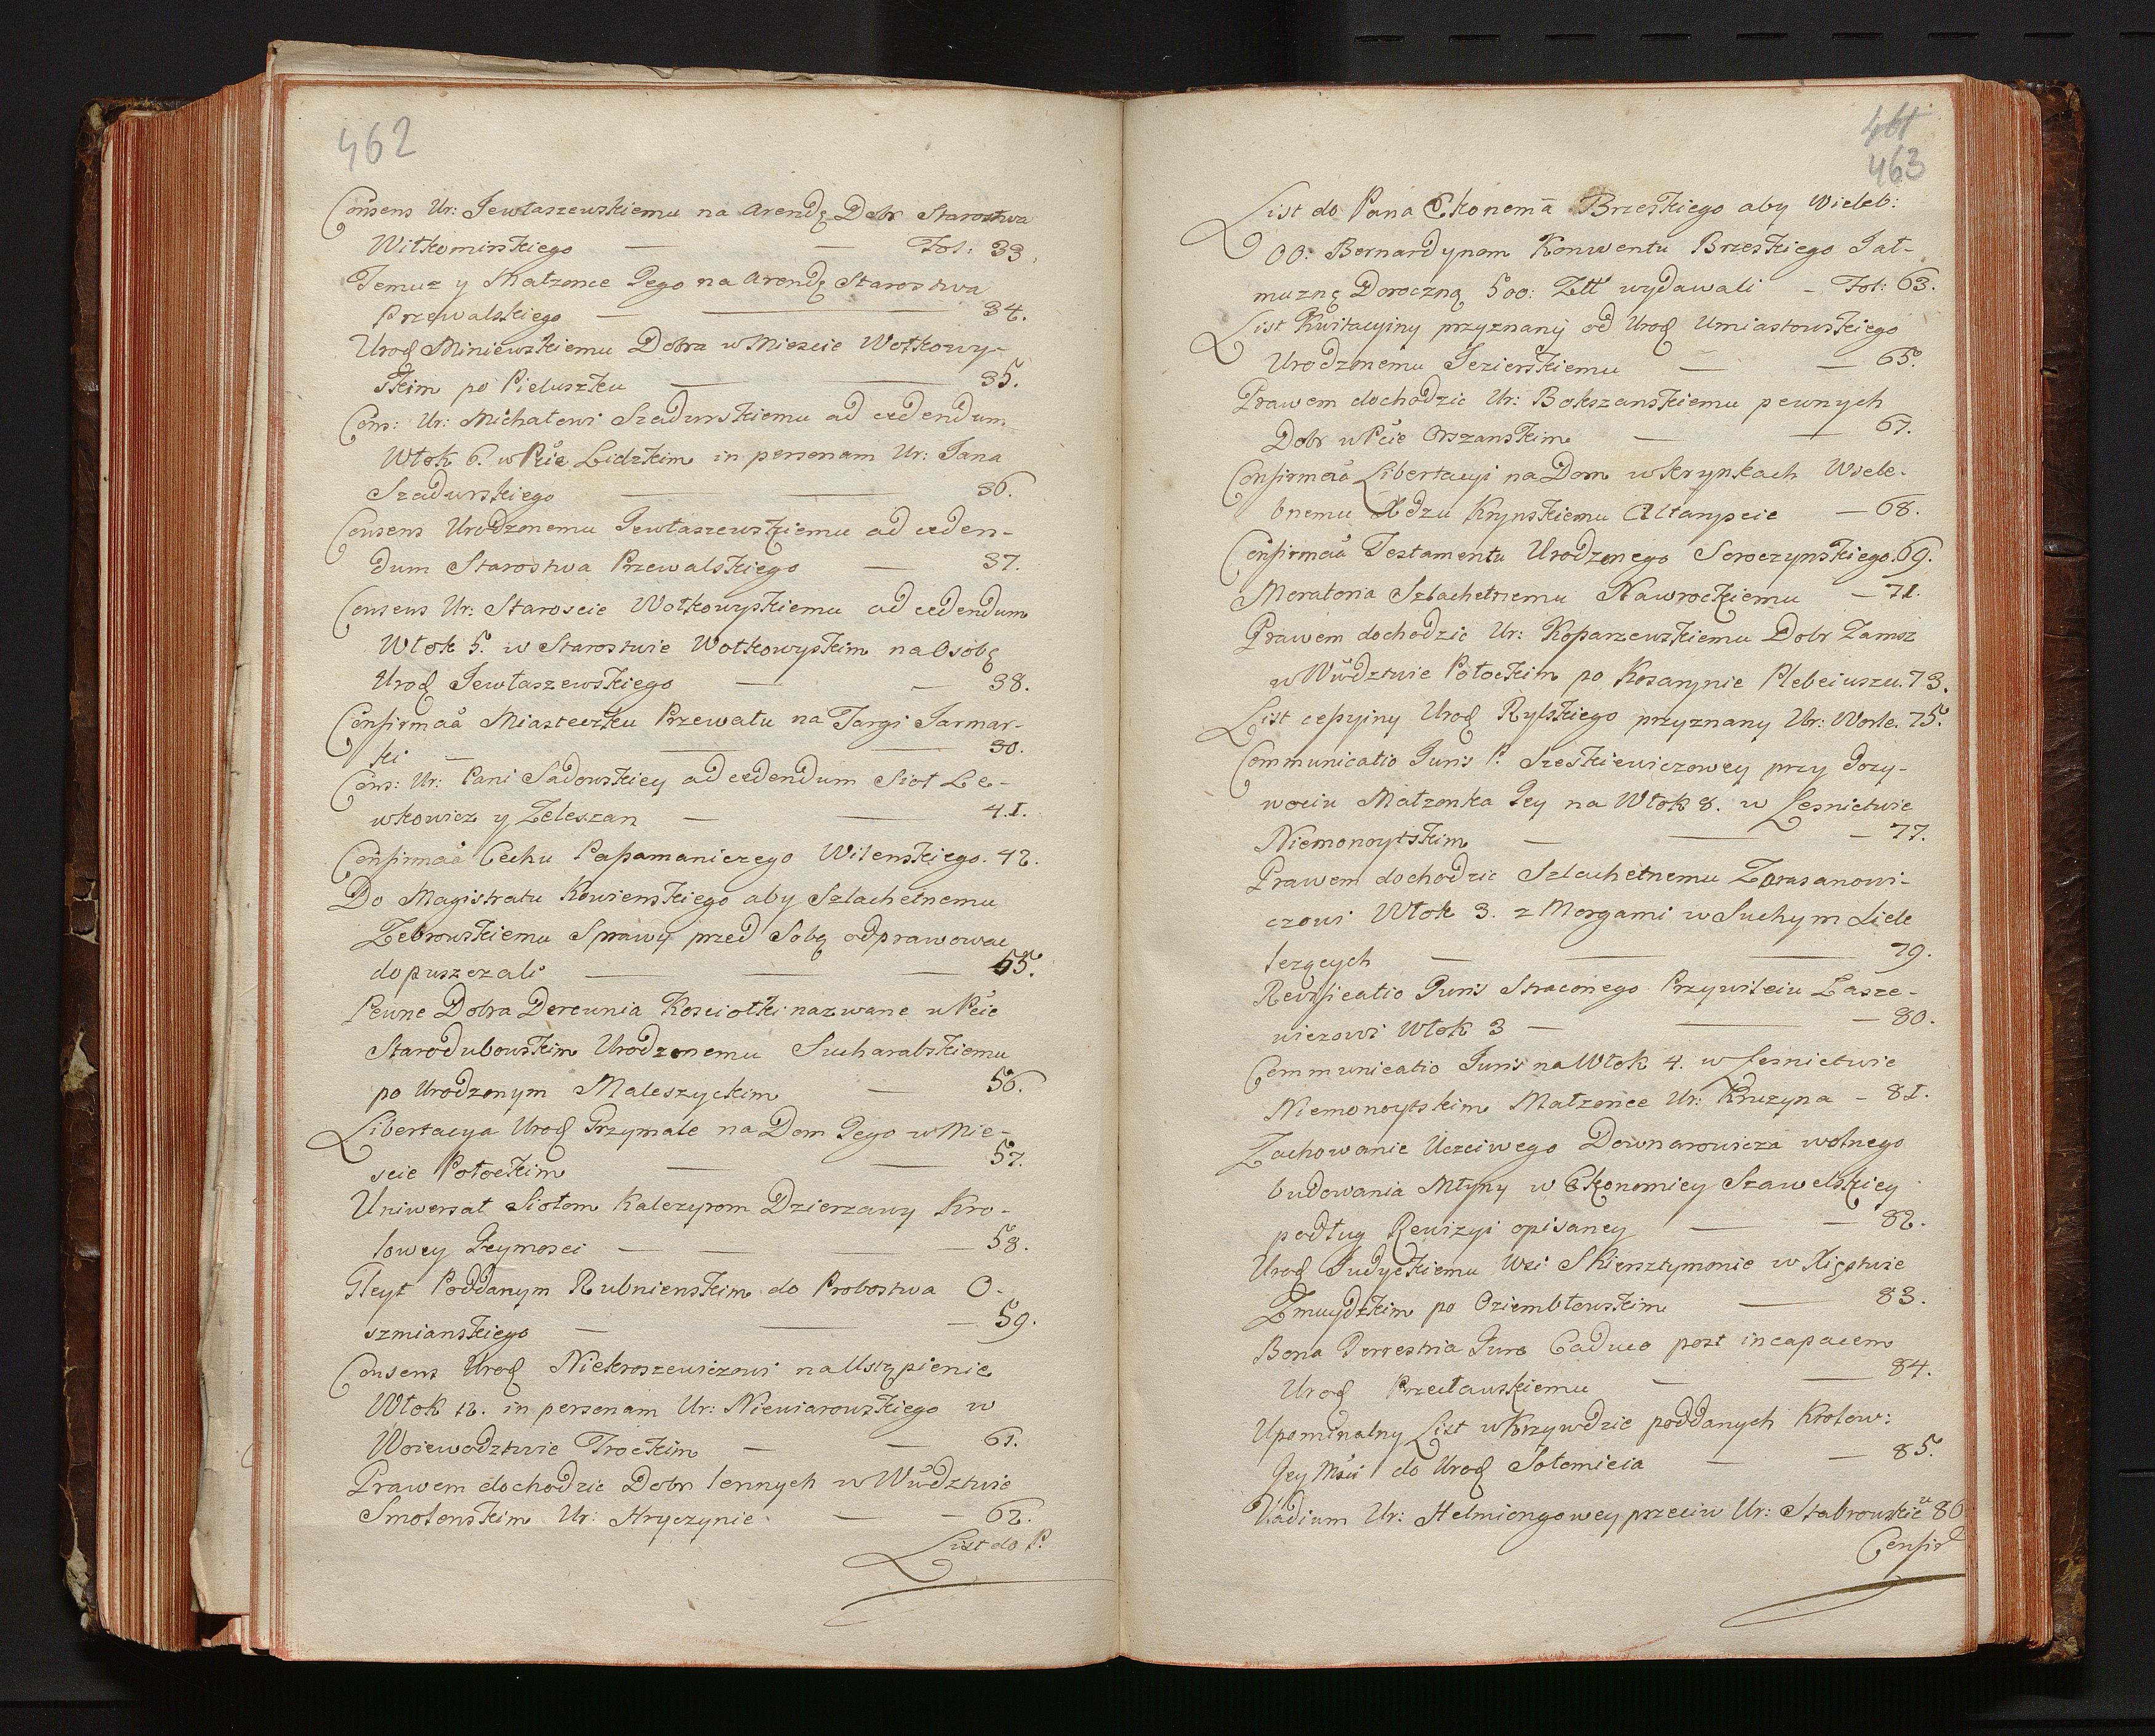 462
Consens Ur: Jewłaszewskiemu na Arendę Dobr Starostwa
Wiłkomirskiego — — Fol: 33.
Temuz y Małzonce Jego na Arendę Starostwa
Przewalskiego — — 34.
Urod Miniewskiemu Dobra w Miescie Wołkowy-
skim po Pieluszku — — 35.
Cons: Ur: Michałowi Szadurskiemu ad cedendum
Włok 6. w Pcie Lidzkim in personam Ur: Jana
Szadurskiego — — 36.
Consens Urodzonemu Jewłaszewskiemu ad ceden-
dum Starostwa Przewalskiego — 37.
Consens Ur: Staroscie Wołkowyskiemu ad cedendum
Włok 5. w Starostwie Wołkowyskim na Osobę
Urod Jewłaszewskiego — — 38.
Confirmaa Miasteczku Przewału na Targi Jarmar-
ki — — — 30.
Cons: Ur: Pani Sadowskiey ad cedendum Sioł Le-
wkowicz y Zeleszan — — 41.
Confirmaa Cechu Pasamaniczego Wilenskiego. 42.
Do Magistratu Kowienskiego aby Szlachetnemu
Zebrowskiemu Sprawy przed Sobą odprawowac
dopuszczali — — — 55.
Pewne Dobra Derewnia Kosciołki nazwane w Pcie
Starodubowskim Urodzonemu Sucharabskiemu
po Urodzonym Maleszyckim — 56.
Libertacya Urod Grzymale na Dom Jego w Mie-
scie Połockim — — 57.
Uniwersał Siołom Kalezyrom Dzierzawy Kro-
lowey Jeymosci — — 58.
Gleyt Poddanym Rubnienskim do Probostwa O-
szmianskiego — — — 59.
Consens Urod Niekroszewiczowi na Ustąpienie
Włok 12. in personam Ur: Niewiarowskiego w
Woiewodztwie Trockim — — 61.
Prawem dochodzic Dobr lennych w Wudztwie
Smolenskim Ur: Hryczynie — — 62.
List do P.
461
463
List do Pana Ekonoma Brzeskiego aby Wieleb:
OO: Bernardynom Konwentu Brzeskiego Jał-
muznę Doroczną 500: Ztt wydawali — Fol: 63.
List Kwitacyiny przyznany od Urod Umiastowskiego
Urodzonemu Jezierskiemu — — 65.
Prawem dochodzic Ur: Bokszanskiemu pewnych
Dobr w Pcie Orszanskim — — 67.
Confirmaa Libertacyi na Dom w Krynkach Wiele-
bnemu Xdzu Krynskiemu Altaryscie — 68.
Confirmaa Testamentu Urodzonego Soroczynskiego. 69.
Moratoria Szlachetnemu Nawrockiemu — 71.
Prawem dochodzic Ur: Koparzewskiemu Dobr Zamsz
w Wudztwie Połockim po Kosarynie Plebeiuszu. 73.
List cessyiny Urod Rylskiego przyznany Ur: Worle. 75.
Communicatio Juris P. Szeskiewiczowey przy dozy-
wociu Małzonka Jey na Włok 8. w Lesnictwie
Niemonoytskim — — — 77.
Prawem dochodzic Szlachetnemu Zarasanowi-
czowi Włok 3. z Morgami w Suchym Siele
lezących — — — 79.
Revisicatio Juris Straconego Przywileiu Łasze-
wiczowi Włok 3 — — — 80.
Communicatio Juris na Włok 4. w Lesnictwie
Niemonoytskim Małzonce Ur: Kruzyna — 81.
Zachowanie Uczciwego Downarowicza wolnego
budowania Młyny w Ekonomiey Szawelskiey
podług Rewizyi opisaney — — 82.
Urod Judyckiemu Wsi Skiersztymonie w Xięstwie
Zmuydzkim po Oziembłowskim — 83.
Bona Terrestria Jure Caduco post incapacem
Urod Przecławskiemu — — 84.
Upominalny List w Krzywdzie poddanych Krolow:
Jey Mści do Urod Sołomieia — — 85.
Vadium Ur: Helmiongowey przeciw Ur: Stabrowskieu 86
Confir